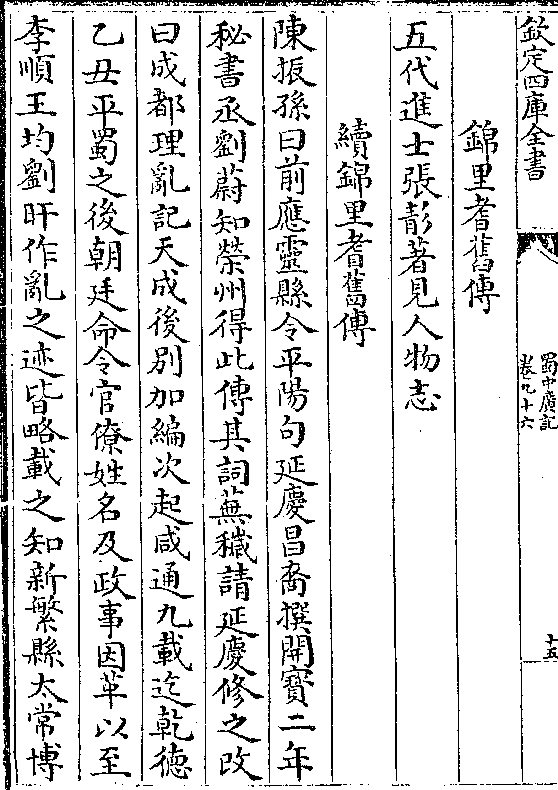 欽定四庫全書
蜀中廣記
卷九十六
十五
錦里耆舊傳
五代進士張彰著見人物志
續錦里耆舊傳
陳振孫曰前應靈縣令平陽句延慶昌裔撰開寶二年
秘書丞劉蔚知榮州得此傳其詞蕪穢請延慶修之改
曰成都理亂記天成後別加編次起咸通九載迄乾德
乙丑平蜀之後朝廷命令官僚姓名及政事因革以至
李順王均劉旰作亂之迹皆略載之知新繁縣太常博